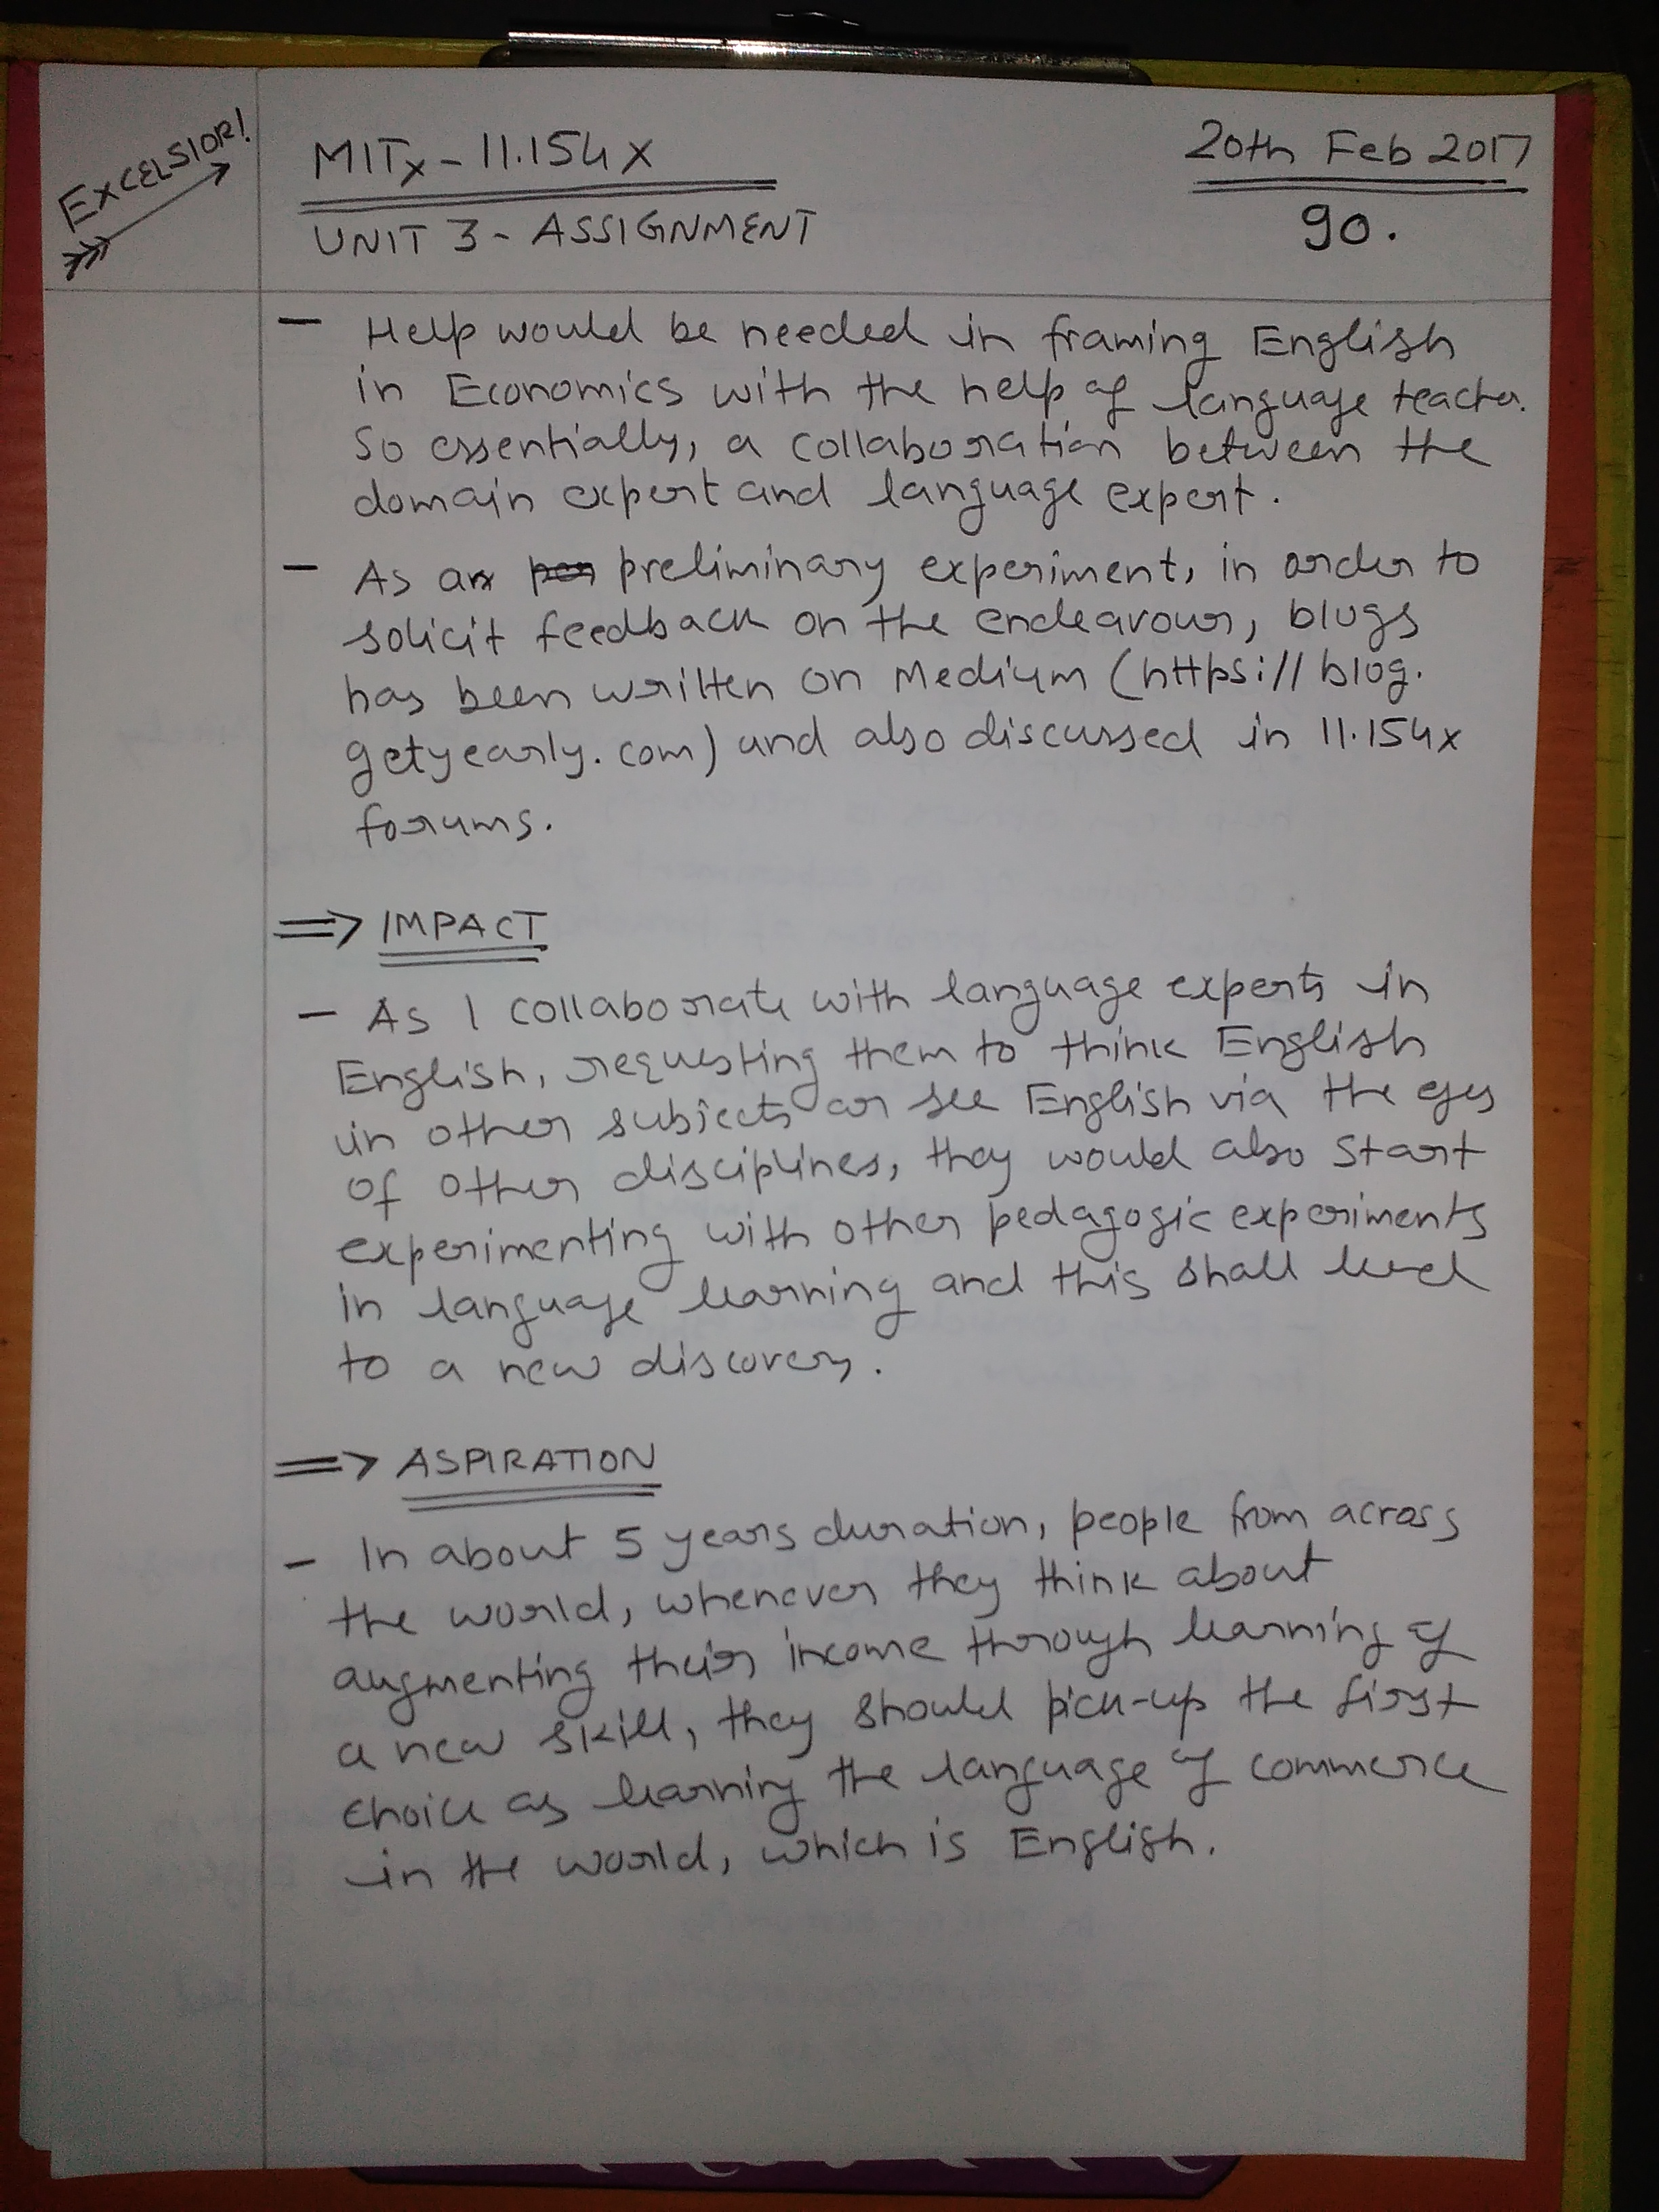 EXCELSIOR!
MITx - 11.154x
20th Feb 2017
UNIT 3 - ASSIGNMENT
90.
- Help would be needed in framing English
in Economics with the help of language teacher.
So essentially, a collaboration between the
domain expert and language expert.
- As an preliminary experiment, in order to
solicit feedback on the endeavour, blogs
has been written on Medium (https://blog.
getyearly.com) and also discussed in 11.154x
forums.
=> IMPACT
- As I collaborate with language experts in
English, requesting them to think English
in other subjects or see English via the eyes
of other disciplines, they would also start
experimenting with other pedagogic experiments
in language learning and this shall lead
to a new discovery.
=> ASPIRATION
- In about 5 years duration, people from across
the world, whenever they think about
augmenting their income through learning of
a new skill, they should pick-up the first
choice as learning the language of commerce
in the world, which is English.